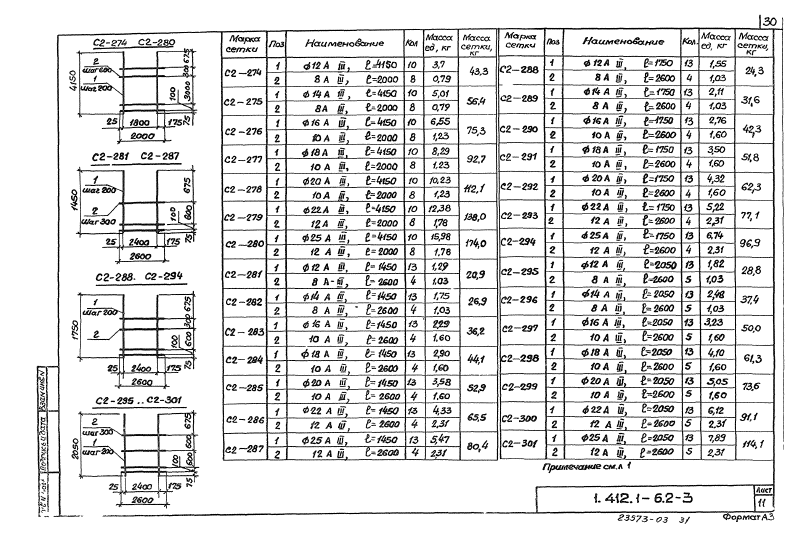 30
С2-274 С2-280
2
шаг 600
1
шаг 200
4150
675
300
3000
100
75
25 1800 175
2000
С2-281 С2-287
1
шаг 200
2
шаг 300
1450
675
600
100
75
25 2400 175
2600
С2-288. С2-294
1
шаг 200
2
1750
675
300
600
100
75
25 2400 175
2600
С2-295 .. С2-301
2
шаг 300
1
шаг 200
2050
675
600
100
75
25 2400 175
2600
Марка сетки Поз Наименование Кол Масса ед, кг Масса сетки, кг
С2-274 1 ф12 А III, ℓ=4150 10 3,7 43,3
2 8 А III, ℓ=2000 8 0,79
С2-275 1 ф14 А III, ℓ=4150 10 5,01 56,4
2 8А III, ℓ=2000 8 0,79
С2-276 1 ф16 А III, ℓ=4150 10 6,55 75,3
2 10 А III, ℓ=2000 8 1,23
С2-277 1 ф18 А III, ℓ=4150 10 8,29 92,7
2 10 А III, ℓ=2000 8 1.23
С2-278 1 ф20 А III, ℓ=4150 10 10,23 112,1
2 10 А III, ℓ=2000 8 1,23
С2-279 1 ф22 А III, ℓ=4150 10 12,38 138,0
2 12 А III, ℓ=2000 8 1,78
С2-280 1 ф25 А III, ℓ=4150 10 15,98 174,0
2 12 А III, ℓ=2000 8 1,78
С2-281 1 ф12 А III, ℓ=1450 13 1,29 20,9
2 8 А-III, ℓ=2600 4 1.03
С2-282 1 ф14 А III, ℓ=1450 13 1,75 26,9
2 8 А III, ℓ=2600 4 1,03
С2-283 1 ф16 А III, ℓ=1450 13 2,29 36,2
2 10 А III, ℓ=2600 4 1.60
С2-284 1 ф18 А III, ℓ=1450 13 2,90 44,1
2 10 А III, ℓ=2600 4 1,60
С2-285 1 ф20 А III, ℓ=1450 13 3,58 52,9
2 10 А III, ℓ=2600 4 1.60
С2-286 1 ф22 А III, ℓ=1450 13 4,33 65,5
2 12 А III, ℓ=2600 4 2,31
С2-287 1 ф25 А III, ℓ=1450 13 5,47 80,4
2 12 А III, ℓ=2600 4 2,31
Марка сетки Поз Наименование Кол. Масса ед, кг Масса сетки, кг
С2-288 1 ф12 А III, ℓ=1750 13 1,55 24,3
2 8 А III, ℓ=2600 4 1,03
С2-289 1 ф14 А III, ℓ=1750 13 2,11 31,6
2 8 А III, ℓ=2600 4 1,03
С2-290 1 ф16 А III, ℓ=1750 13 2,76 42,3
2 10 А III, ℓ=2600 4 1,60
С2-291 1 ф18 А III, ℓ=1750 13 3,50 51,8
2 10 А III, ℓ=2600 4 1.60
С2-292 1 ф20 А III, ℓ=1750 13 4,32 62,3
2 10 А III, ℓ=2600 4 1,60
С2-293 1 ф22 А III, ℓ=1750 13 5,22 77,1
2 12 А III, ℓ=2600 4 2,31
С2-294 1 ф25 А III, ℓ=1750 13 6,74 96,9
2 12 А III, ℓ=2600 4 2.31
С2-295 1 ф12 А III, ℓ=2050 13 1,82 28,8
2 8 А III, ℓ=2600 5 1,03
С2-296 1 ф14 А III, ℓ=2050 13 2,48 37,4
2 8 А III, ℓ=2600 5 1,03
С2-297 1 ф16 А III, ℓ=2050 13 3,23 50,0
2 10 А III, ℓ=2600 5 1,60
С2-298 1 ф18 А III, ℓ=2050 13 4,10 61,3
2 10 А III, ℓ=2600 5 1,60
С2-299 1 ф20 А III, ℓ=2050 13 5,05 73,6
2 10 А III, ℓ=2600 5 1,60
С2-300 1 ф22 А III, ℓ=2050 13 6,12 91,1
2 12 А III, ℓ=2600 5 2,31
С2-301 1 ф25 А III, ℓ=2050 13 7,89 114,1
2 12 А III, ℓ=2600 5 2,31
Примечание см.л 1
1. 412.1-6.2-3
Лист
11
23573-03 31
Формат А3